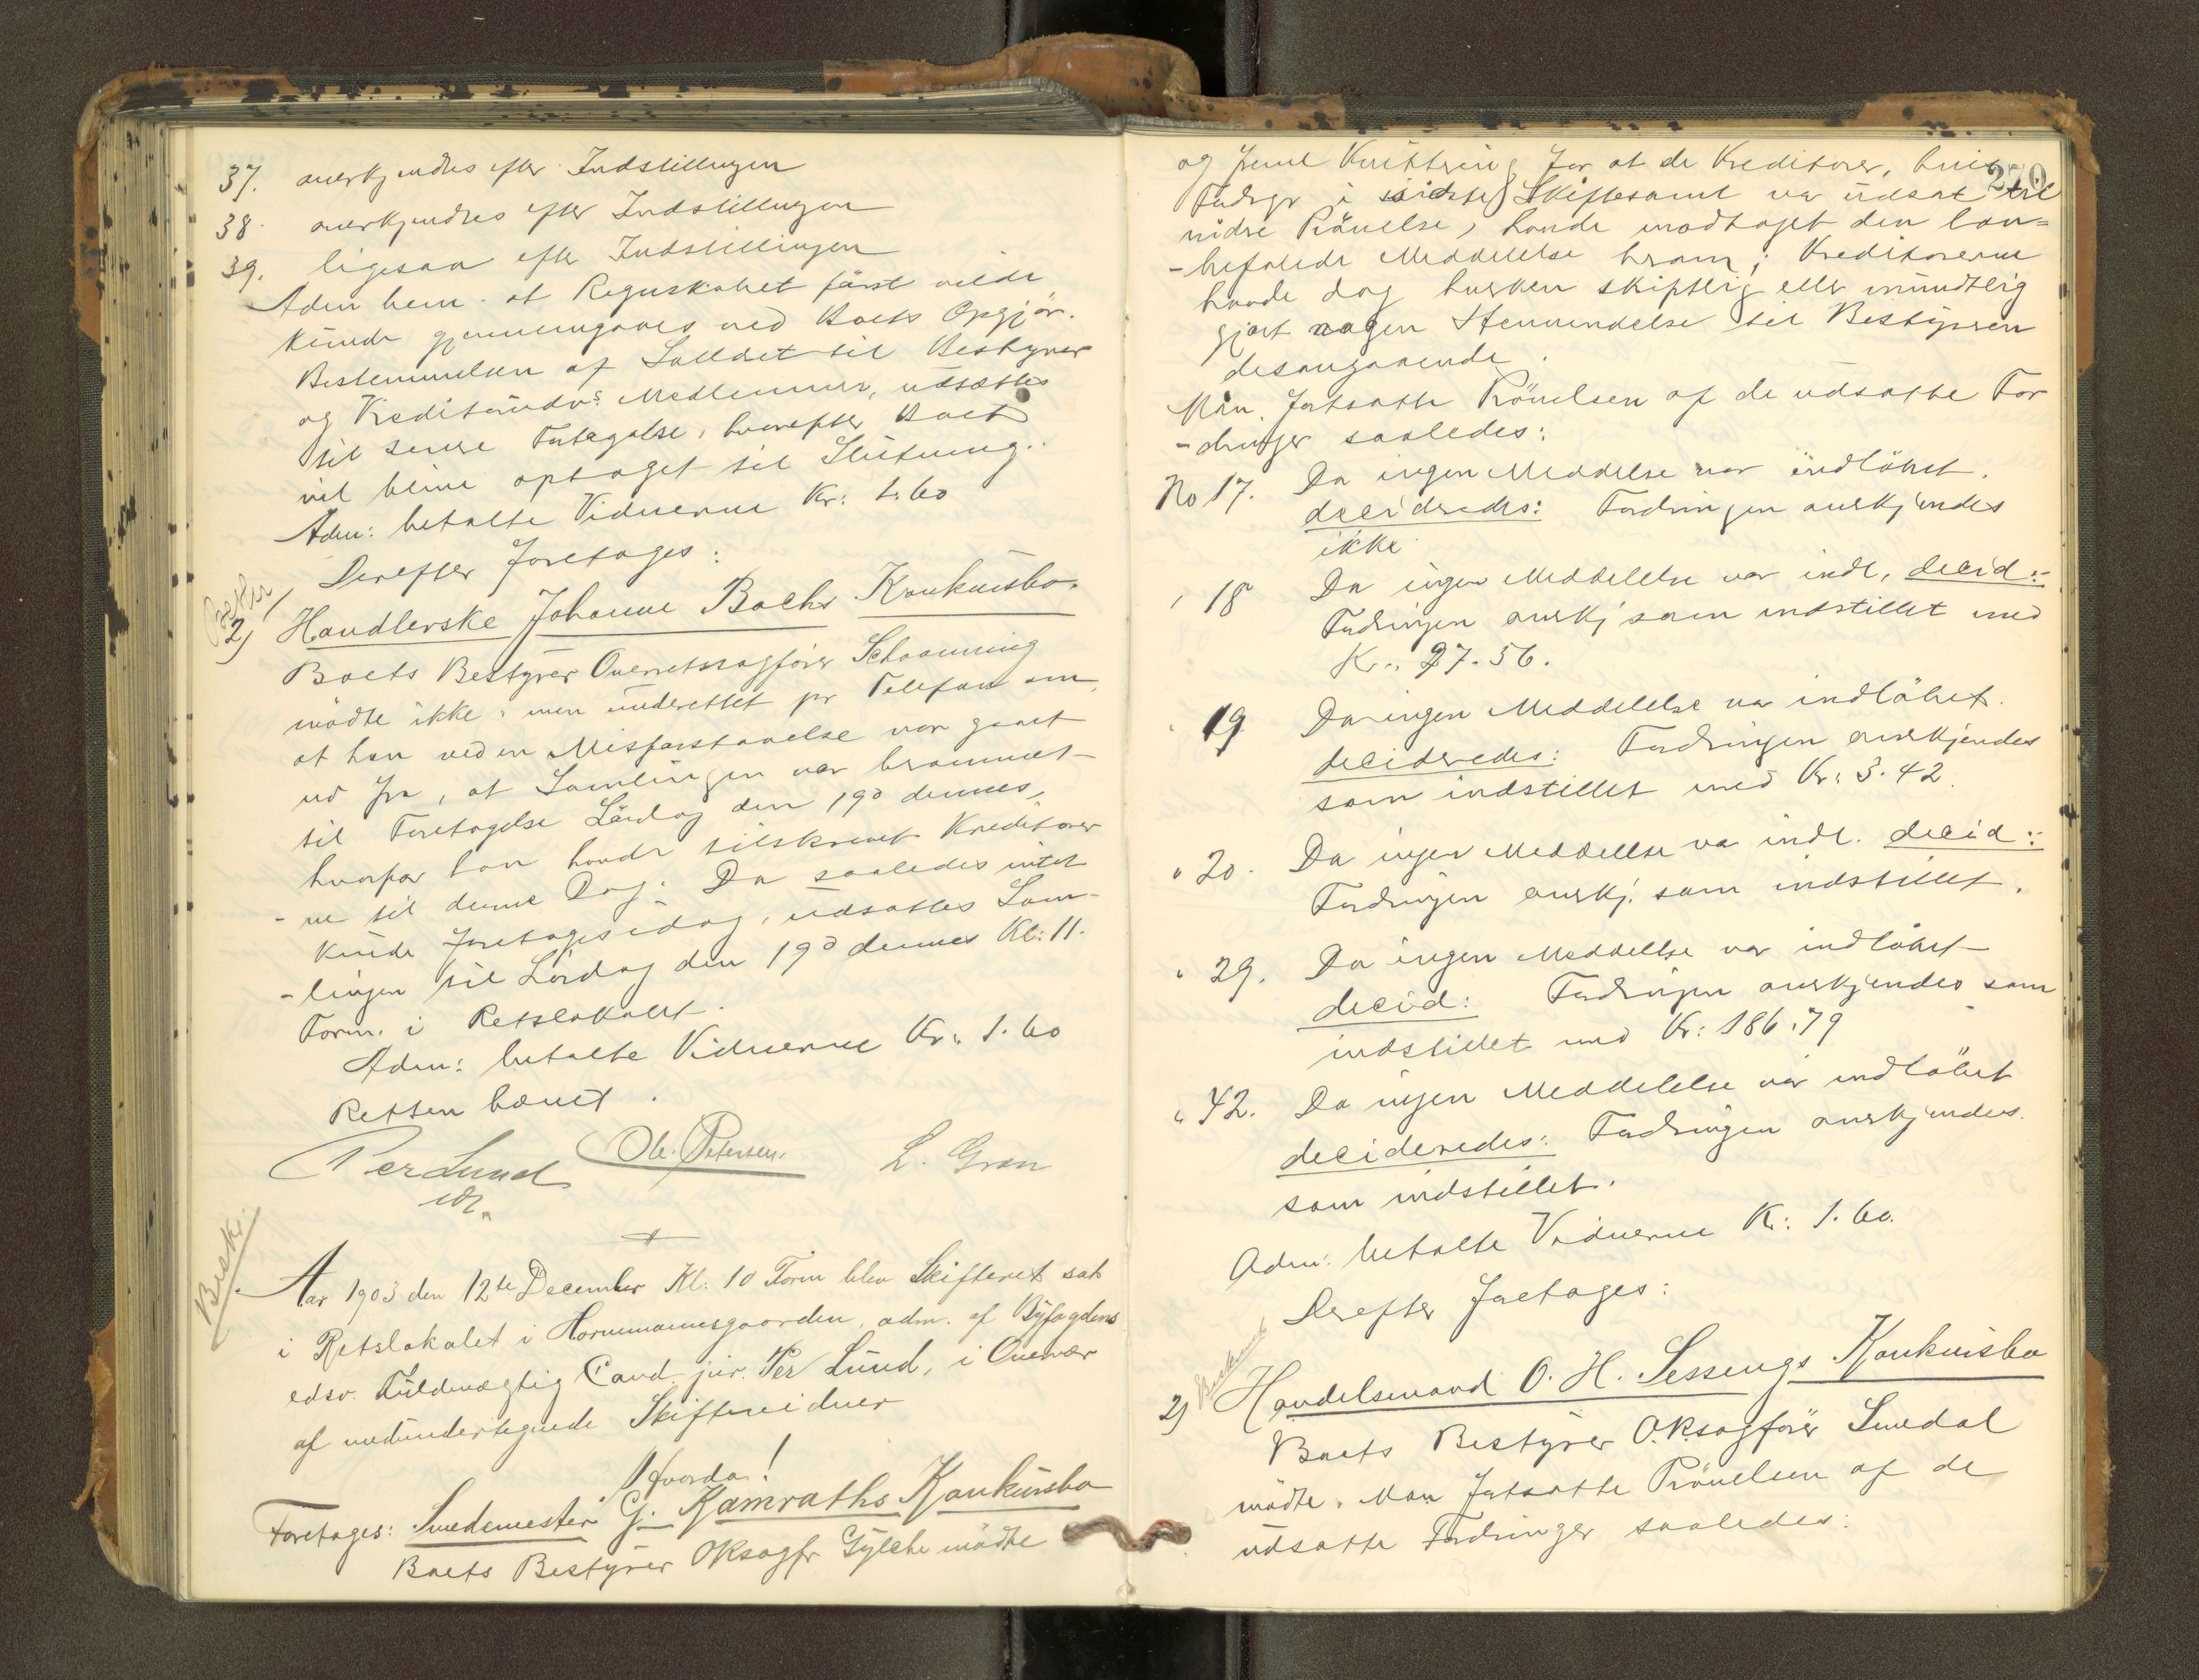 37. anerkjendtes efter Indstillingen
38. anerkjendtes efter Indstillingen
39. ligesaa efter Indstillingen
Adm bem. at Regnskabet först vilde
kunde gjennemgaaes ved Boets Opgjör.
Bestemmelsen af Salæret til Bestyrer
og Kreditorudvs. Medlemmer, udsættes
til senere Foretagelse, hvorefter Boet
vil blive optaget til Slutning.
Adm: betalte Vidnerne Kr: 1.60
Derefter foretages:
2) Handlerske Johanne Bachs Konkursbo.
Boets Bestyrer Overretssagförer Schaanning
mödte ikke, men underettet pr Telefon om,
at han ved en Misforstaaelse var gaaet
ud fra, at Samlingen var berammet
til Foretagelse Lördag den 19d dennes,
hvorfor han havde tilskrevet Kreditorer
-ne til denne Dag. Da saaledes intet
kunde foretages idag, udsattes Sam-
-lingen til Lördag den 19d dennes Kl: 11.
Form. i Retslokalet.
Adm: betalte Vidnerne Kr: 1.60
Retten hævet.
Per Lund Ole Petersen. L. Gran
Beskr.
Aar 1903 den 12te December Kl: 10 Form blev Skifteret sat
i Retslokalet i Hornemannsgaarden, adm. af Byfogdens
edsv. Fuldmægtig Cand. jur. Per Lund, i Overvær
af medundertegnede Skiftevidner
Hvorda!
Foretages: Smedemester G. Kamraths Konkursbo
Boets Bestyrer OKsagfr Gylche mödte
270
og fremlagde Kvittering for at de Kreditorer, hvis
Fordrgr i sidste Skiftesaml var udsat til
vidre Prövelse, havde modtaget den lov-
-befalede Meddelelse herom; Kreditorerne
havde dog hverken skriftlig eller mundtlig
gjort nogen Henvendelse til Bestyreren
desangaaende.
Man fortsatte Prövelsen af de udsatte For
-dringer saaledes:
No 17. Da ingen Meddelse var indlöbet.
decideredes: Fordringen anerkjendes
ikke
" 18 Da ingen Meddelelse var indl, decid:
Fordringen anerkj som indstillet med
Kr: 27.56.
" 19 Da ingen Meddelelse var indlöbet.
decideredes: Fordringen anerkjendes
som indstillet med Kr: 3.42.
" 20. Da ingen Meddelelse var indl. decid:
Fordringen anerkj. som indstillet.
" 29. Da ingen Meddelelse var indlöbet
decid: Fordringen anerkjendes som
indstillet med Kr: 186.79
" 42. Da ingen Meddelelse var indlöbet
decideredes: Fordringen anerkjendes
som indstillet.
Adm: betalte Vidnerne Kr: 1.60.
Derefter foretages:
2) Handelsmand O. H. Sessengs Konkursbo
Boets Bestyrer O.R.sagförer Smedal
mödte. Man fortsatte Prövelsen af de
udsatte Fordringer saaledes: